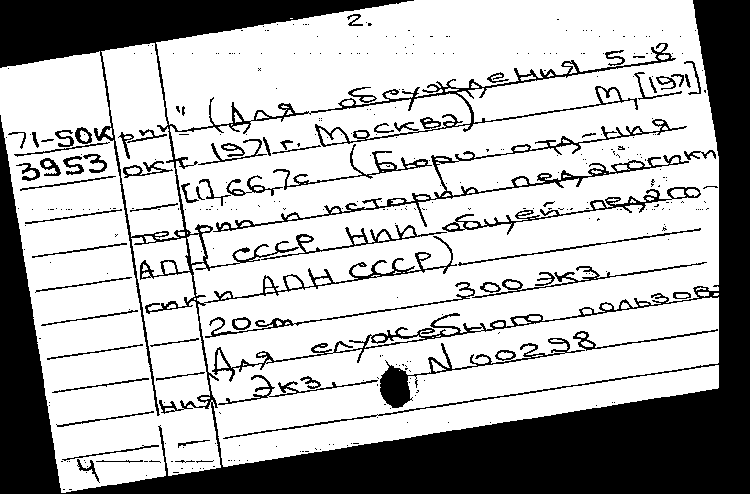 2.
71-50к рии" (Для обсуждения 5-8
3953 окт. 1971 г. Москва). М, [1971].
[1], 66, 7с. (Бюро отд-ния
теории и истории педагогики
АПН СССР. НИИ общей педаго-
гики АПН СССР).
20см. 300 экз.
Для служебного пользова
ния. Экз. N 00298
4